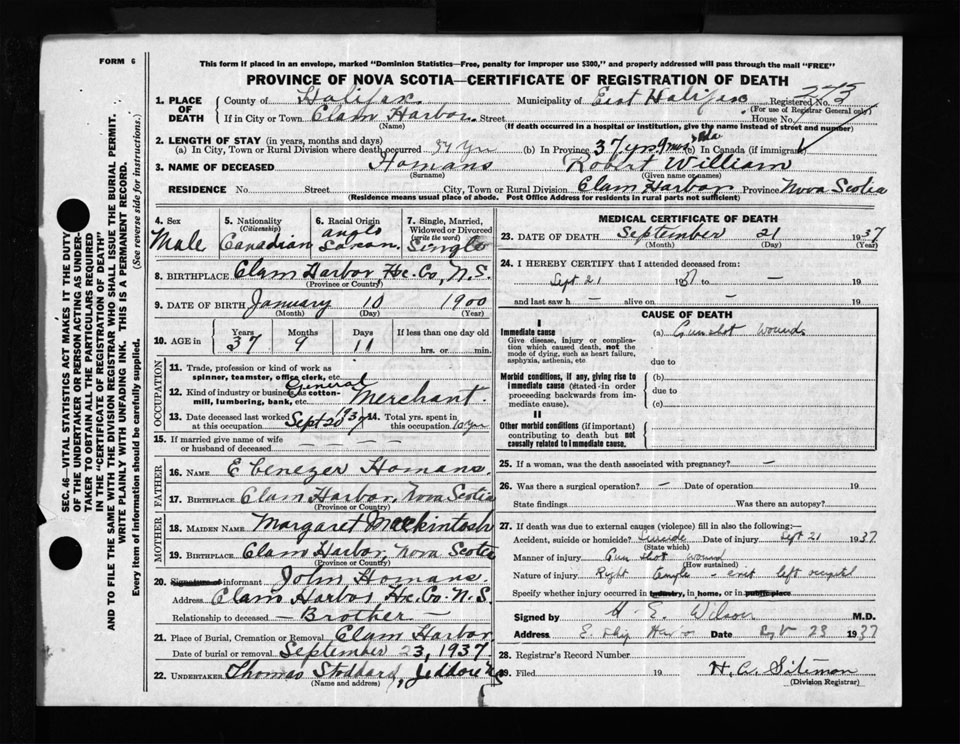 FORM 6
This form if placed in an envelope, marked "Dominion Statistics—Free, penalty for improper use $300," and properly addressed will pass through the mail "FREE"
PROVINCE OF NOVA SCOTIA—CERTIFICATE OF REGISTRATION OF DEATH
1. PLACE OF DEATH County of Halifax Municipality of East Halifax Registered No. 273
(For use of Registrar General only)
If in City or Town Clam Harbor. Street House No.
(Name) (If death occurred in a hospital or institution, give the name instead of street and number)
2. LENGTH OF STAY (in years, months and days)
(a) In City, Town or Rural Division where death occurred 37 yrs (b) In Province 37 yrs 9 mos (c) In Canada (if immigrant)
3. NAME OF DECEASED Homans Robert William
(Surname) (Given name or names)
RESIDENCE No Street City, Town or Rural Division Clam Harbor Province Nova Scotia
(Residence means usual place of abode. Post Office Address for residents in rural parts not sufficient)
4. Sex Male
5. Nationality (Citizenship) Canadian
6. Racial Origin anglo Saxon.
7. Single, Married, Widowed or Divorced (write the word) Single
8. BIRTHPLACE Clam Harbor Hx. Co, N.S.
(Province or Country)
9. DATE OF BIRTH January 10 1900
(Month) (Day) (Year)
10. AGE in Years 37 Months 9 Days 11 If less than one day old hrs. or min.
OCCUPATION
11. Trade, profession or kind of work as spinner, teamster, office clerk, etc.
12. Kind of industry or business as cotton-mill, lumbering, bank, etc. General Merchant.
13. Date deceased last worked at this occupation Sept 20 1937 14. Total yrs. spent in this occupation 10 yrs
15. If married give name of wife or husband of deceased — — —
FATHER
16. NAME Ebenezer Homans.
17. BIRTHPLACE Clam Harbor, Nova Scotia
(Province or Country)
MOTHER
18. MAIDEN NAME Margaret Mackintosh
19. BIRTHPLACE Clam Harbor, Nova Scotia
(Province or Country)
20. Signature of informant John Homans.
Address Clam Harbor Hx. Co. N.S.
Relationship to deceased — Brother —
21. Place of Burial, Cremation or Removal Clam Harbor
Date of burial or removal September 23, 1937
22. UNDERTAKER Thomas Stoddard, Jeddore N.S
(Name and address)
MEDICAL CERTIFICATE OF DEATH
23. DATE OF DEATH September 21 1937
(Month) (Day) (Year)
24. I HEREBY CERTIFY that I attended deceased from:
Sept 21 1937 to — 19
and last saw h — alive on — 19
CAUSE OF DEATH
I
Immediate cause (a) Gunshot wound
Give disease, injury or complication which caused death, not the mode of dying, such as heart failure, asphyxia, asthenia, etc
due to
Morbid conditions, if any, giving rise to immediate cause (stated in order proceeding backwards from immediate cause). (b)
due to
(c)
II
Other morbid conditions (if important) contributing to death but not causally related to immediate cause.
25. If a woman, was the death associated with pregnancy? —
26. Was there a surgical operation? — Date of operation 19
State findings Was there an autopsy?
27. If death was due to external causes (violence) fill in also the following:—
Accident, suicide or homicide? Suicide Date of injury Sept 21 1937
(State which)
Manner of injury Gun shot wound
(How sustained)
Nature of injury Right temple - exit left occipital
Specify whether injury occurred in industry, in home, or in public place
Signed by H. E. Wilson M.D.
Address E. Ship Har Date 23 1937
28. Registrar's Record Number
29. Filed 19 H. C. Siteman
(Division Registrar)
SEC. 46—VITAL STATISTICS ACT MAKES IT THE DUTY
OF THE UNDERTAKER OR PERSON ACTING AS UNDER-
TAKER TO OBTAIN ALL THE PARTICULARS REQUIRED
IN THE "CERTIFICATE OF REGISTRATION OF DEATH"
AND TO FILE THE SAME WITH THE DIVISION REGISTRAR WHO SHALL ISSUE THE BURIAL PERMIT.
WRITE PLAINLY WITH UNFADING INK. THIS IS A PERMANENT RECORD.
Every item of information should be carefully supplied. (See reverse side for instructions.)